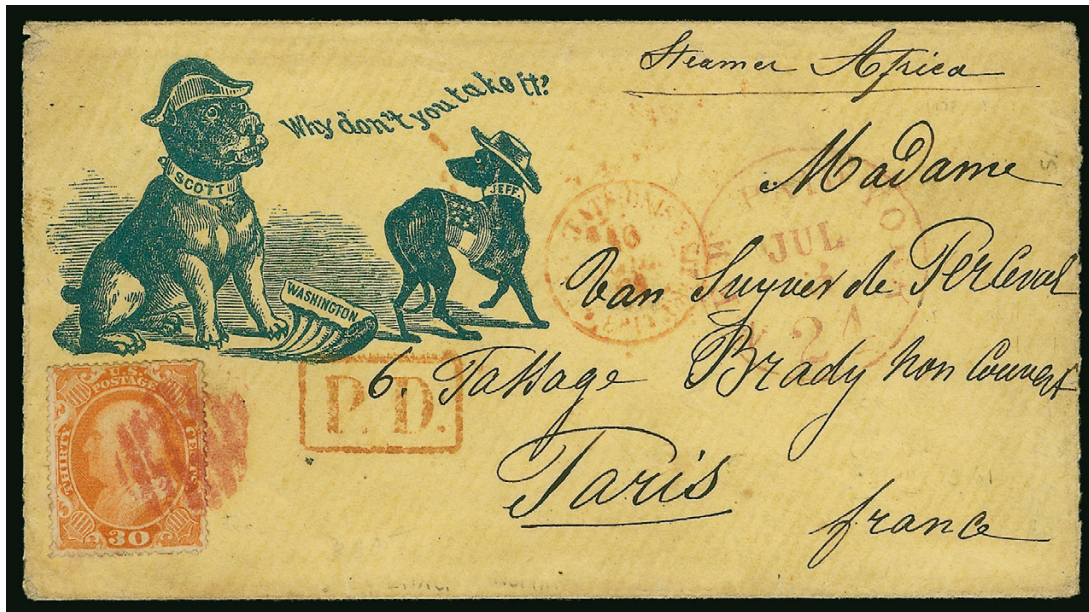 Steamer Africa
Why don't you take it?
SCOTT
JEFF
WASHINGTON
Madame
Van Suyver de Perceval
6, Passage Brady non Couvert
Paris
france
P.D.
JUL
24
U.S.
POSTAGE
THIRTY
CENTS
30